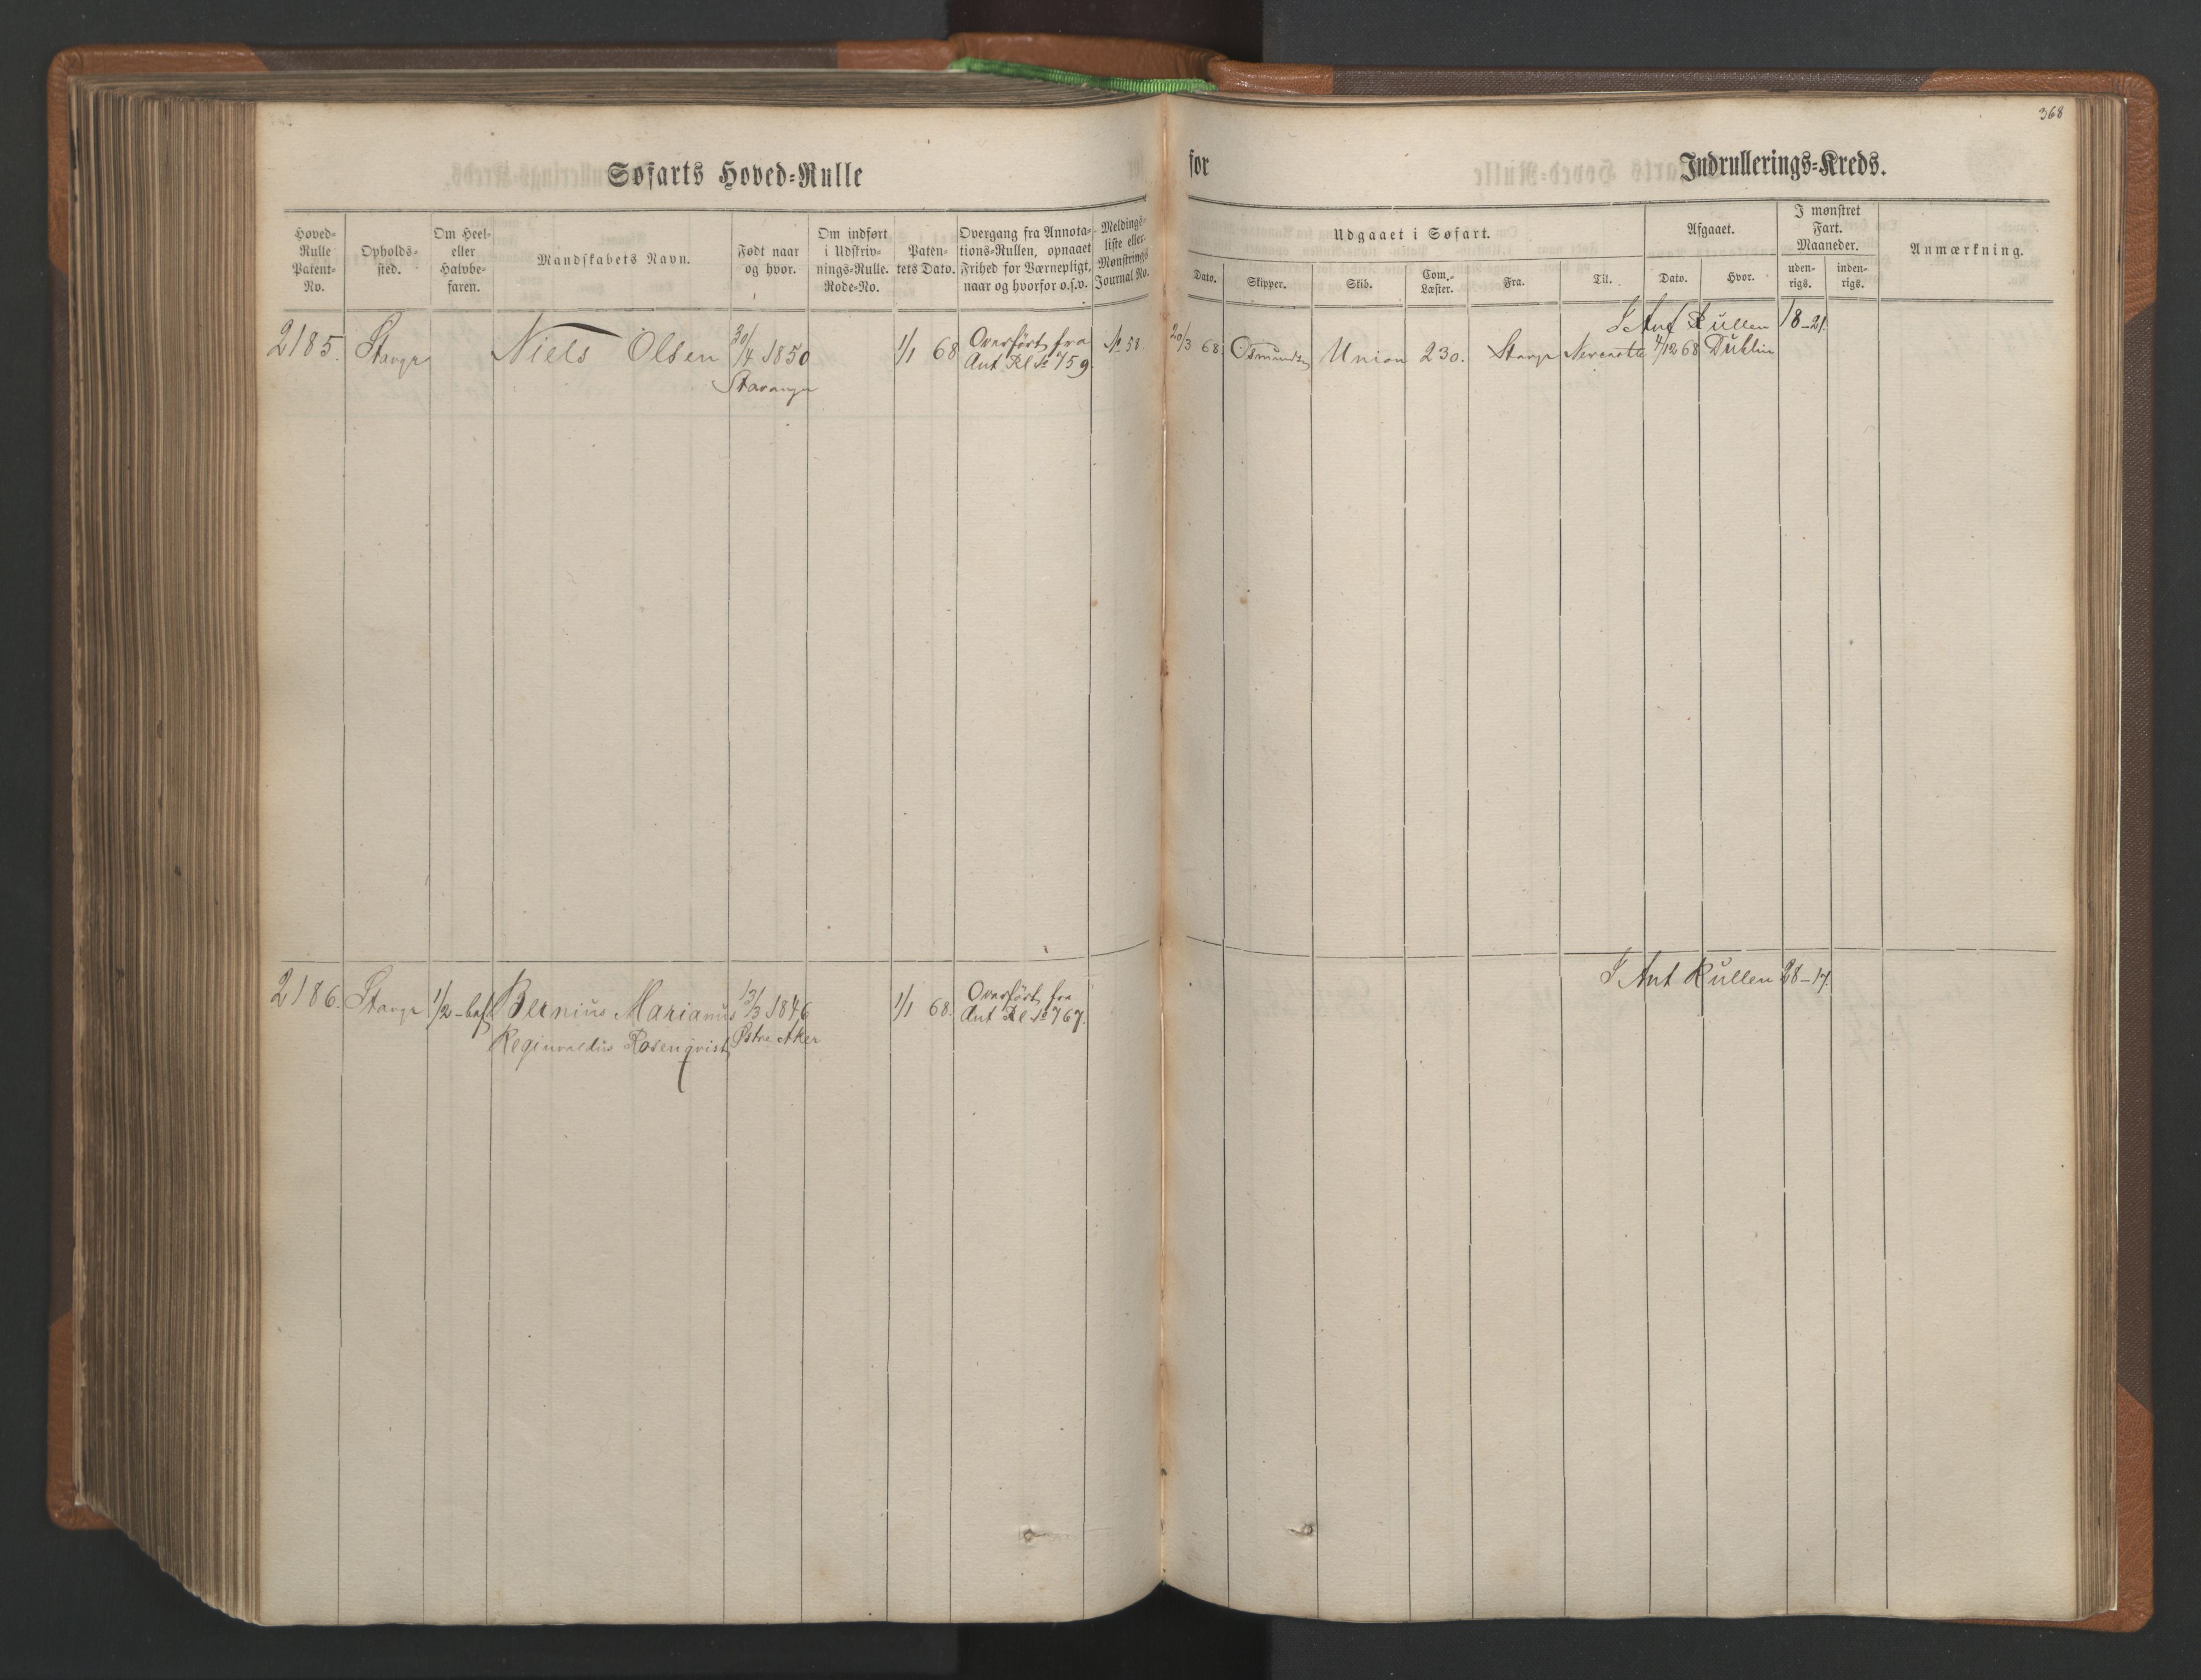 368
Søfarts Hoved-Rulle for Indrullerings-Kreds.
Hoved-
Rulle
Patent-
No.
Opholds-
sted.
Om Heel-
eller
Halvbe-
faren.
Mandskabets Navn.
Født naar
og hvor.
Om indført
i Udskriv-
nings-Rulle.
Rode-No.
Paten-
tets Dato.
Overgang fra Annota-
tions-Rullen, opnaaet
Frihed for Værnepligt,
naar og hvorfor o.s.v.
Meldings-
liste eller
Mønstrings
Journal No.
Udgaaet i Søfart.
Dato.
Skipper.
Skib.
Com.-
Læster.
Fra.
Til.
Afgaaet.
Dato.
Hvor.
I mønstret
Fart.
Maaneder.
uden-
rigs.
inden-
rigs.
Anmærkning.
I Ant Rullen 18-21.
2185. Stavgr Niels Olsen 30/4 1850 1/1 68 Overført fra No 58. 20/3 68 Osmundsen Union 230. Stavgr Newcastle 4/12 68 Dublin
Stavanger Ant Rl No 759.
I Ant Rullen 28-17.
2186. Stavgr 1/2-baf Bernius Marianus 13/3 1846 1/1 68. Overført fra
Reginvaldus Rosenqvist Østre Aker Ant Rl No 767.